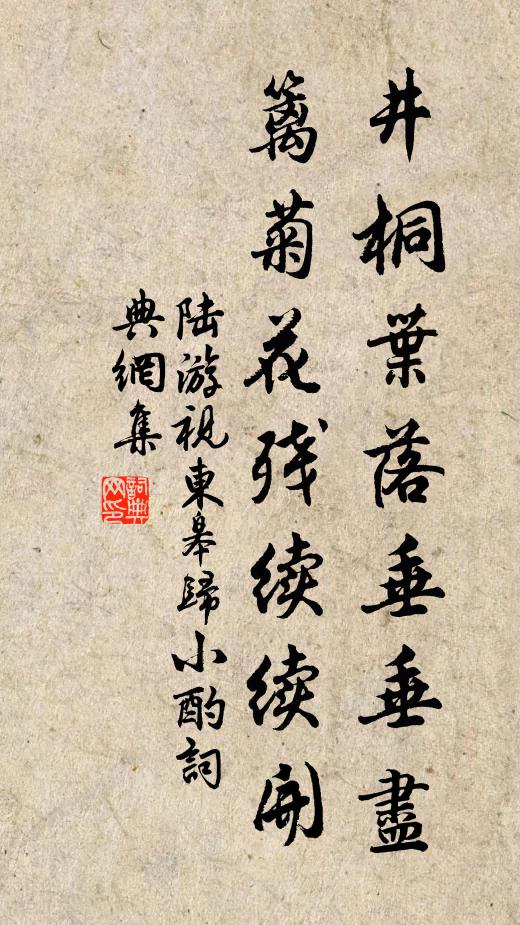 井桐葉落垂垂盡
籬菊花殘續續開
陸游視東皋歸小酌詞
典網集
詞典網印